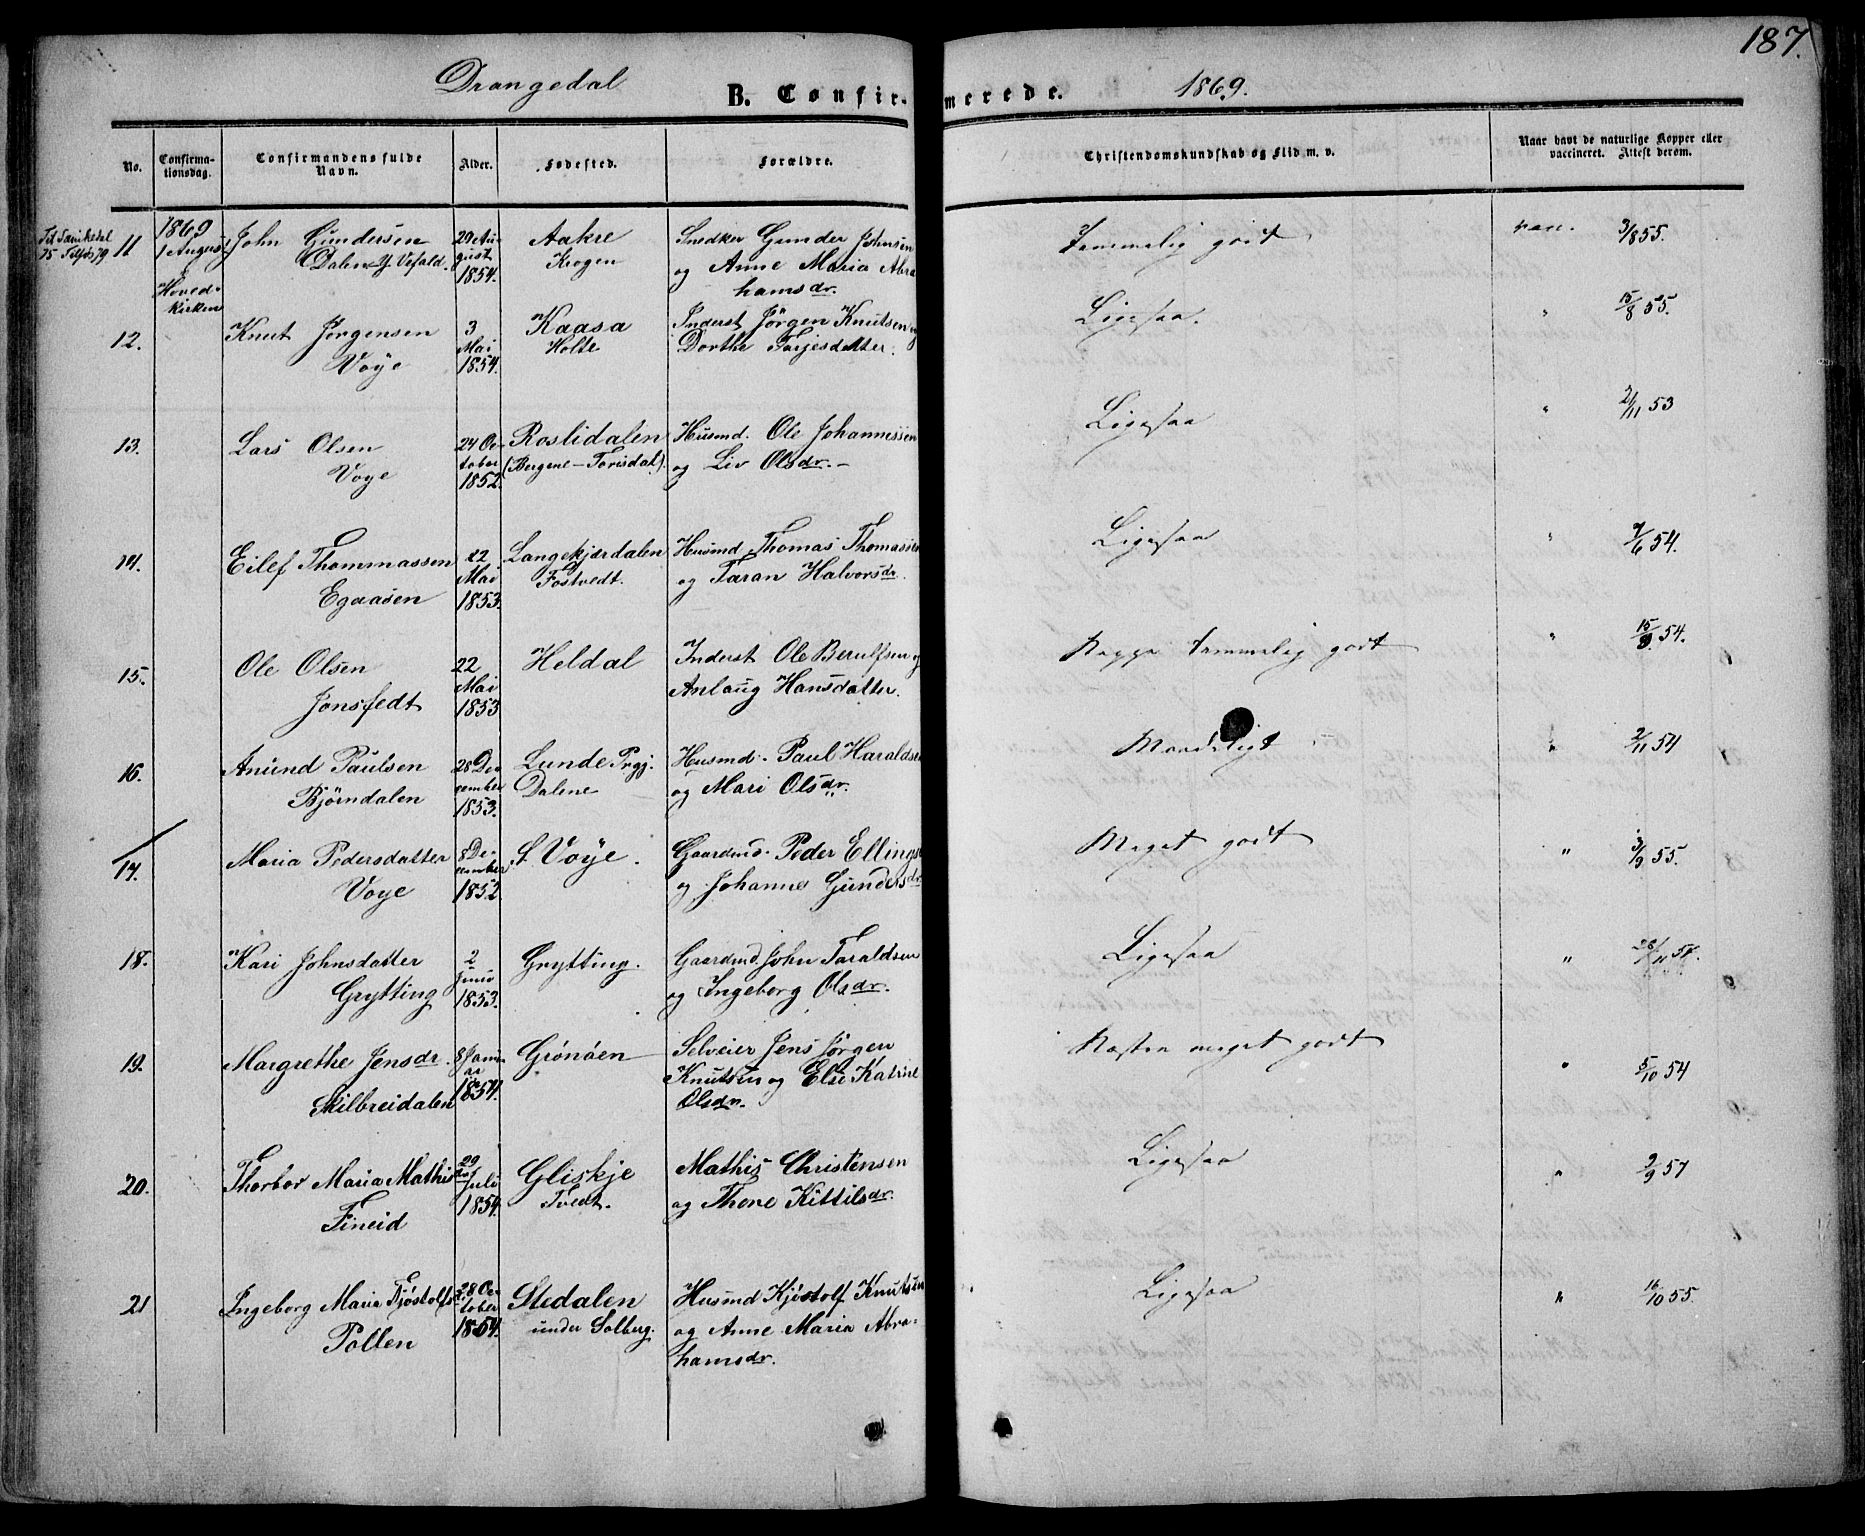 187.
Drangedal
B. Confirmerede.
1869.
No.
Confirma-
tionsdag.
Confirmandens fulde
Navn.
Alder.
Fødested.
Forældre.
Christendomskundskab og Flid m. v.
Naar havt de naturlige Kopper eller
vaccineret. Attest derom.
11
1869
1 August
Hoved-
kirken
John Gundersen
Dalen
20 Au-
gust
1854.
Aakre
Krogen
Snedker Gunder Johnsen
og Anne Maria Abra
hamsdr.
Temmelig godt
vacc. 3/8 55.
12.
Knut Jørgensen
Voje
3
Mai
1854.
Kaasa
Holte
Inderst Jørgen Knutsen og
Dorthe Tarjesdatter.
Ligesaa.
" 15/8 55.
13.
Lars Olsen
Voje
24 Oc-
tober
1852.
Roslidalen
(Bergene - Torisdal).
Husmd. Ole Johannessen
og Liv Olsdr. -
Ligesaa
" 2/11 53
14.
Eilef Thommassen
Egaasen
12
Mai
1853.
Langekjærdalen
Fostvedt.
Husmd. Thomas Thomassen
og Taran Halvorsdr.
Ligesaa
" 7/6 54.
15.
Ole Olsen
Jonsfedt
22
Mai
1853
Heldal
Inderst Ole Berulfsen og
Anlaug Hansdatter.
Neppe temmelig godt
" 15/8 54.
16.
Anund Paulsen
Bjørndalen
28 De-
cember
1853.
Lunde Prgj.
Dalene
Husmd. Paul Haraldsen
og Mari Olsdr.
Maadeligt
" 2/11 54
17.
Maria Pedersdatter
Voje
8 De-
cember
1852
S. Voje.
Gaardmd. Peder Ellings
og Johanne Gundersdr
Meget godt
" 3/9 55.
18.
Kari Johnsdatter
Grytting
2
Juni
1853.
Grytting.
Gaardmd. John Taraldsen
og Ingeborg Olsdr.
Ligesaa
"
19.
Margrethe Jensdr.
Skilbreidalen
8 Janu-
ar
1854.
Grönåen
Selveier Jens Jørgen
Knutsen og Else Katrine
Olsdr.
Næsten meget godt
" 5/10 54
20.
Thorbor Maria Mathisdr
Fineid
29
Juli
1854.
Gliskje
Tvedt.
Mathis Christensen
og Thone Kittilsdr.
Ligesaa
" 2/9 57
21
Ingeborg Maria Kjøstolfsdr
Pollen
28 Oc-
tober
1854.
Stedalen
under Solberg.
Husmd Kjøstolf Knutsen
og Anne Maria Abra-
hamsdr.
Ligesaa
" 16/10 55.